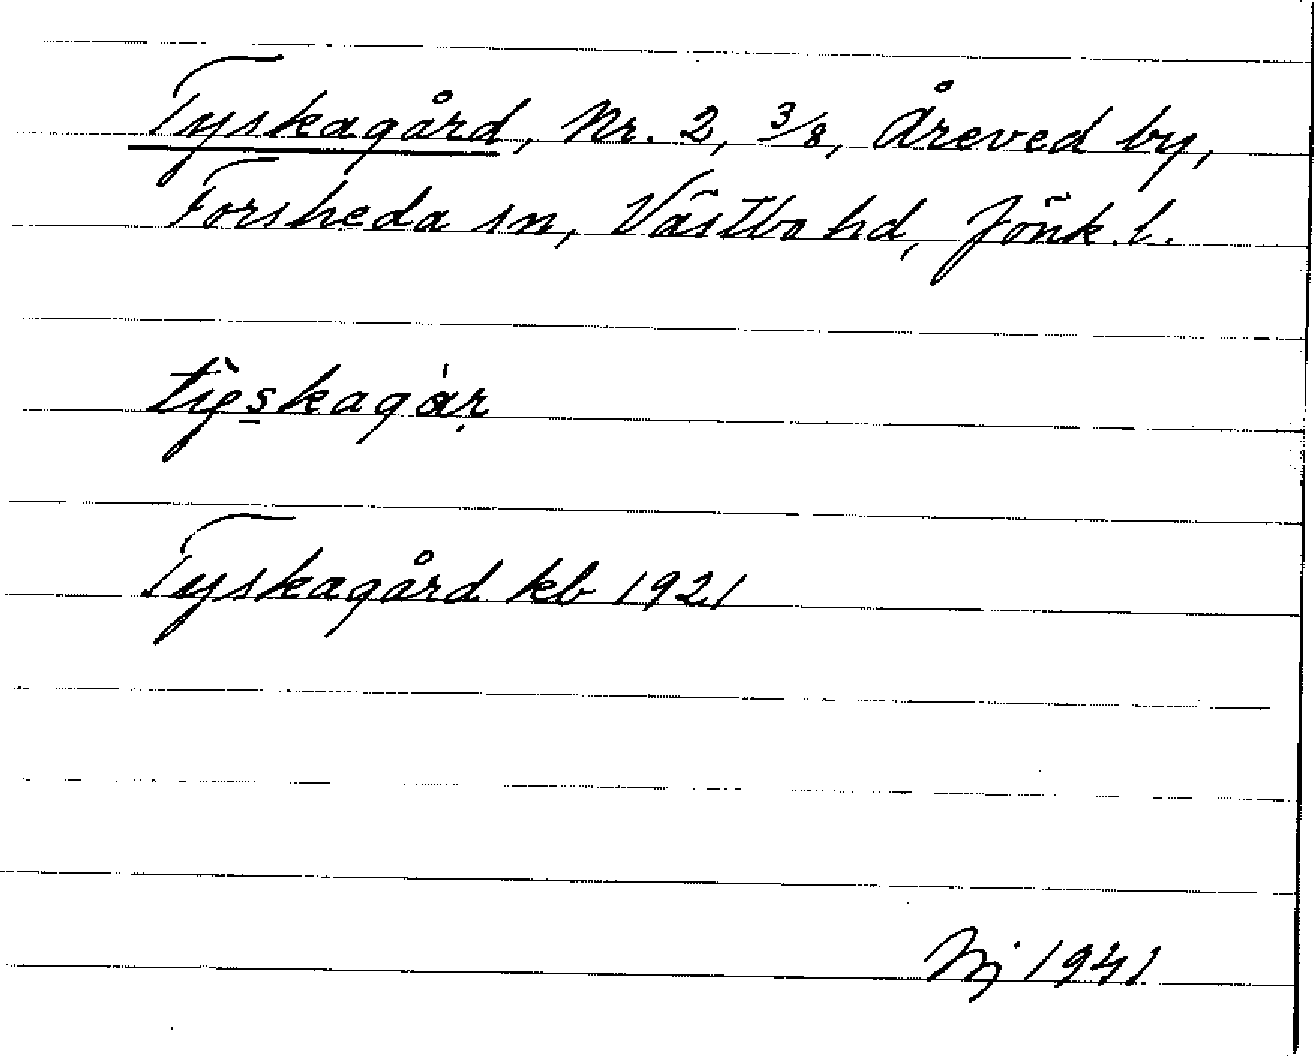 Tyskagård, Nr. 2, 3/8, Åreved by,
Forsheda sn, Västbo hd, Jönk. l.
tỳs̠kagár̩
Tyskagård kb 1921
1941